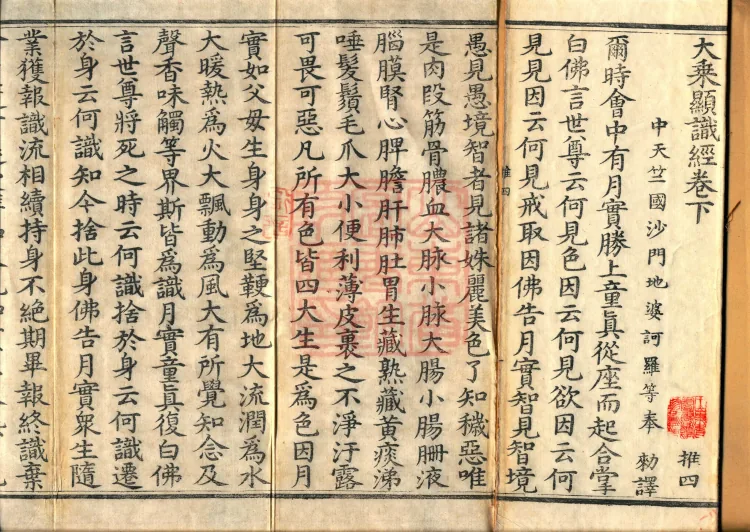 大乗顯識經卷下
推四
中天竺國沙門地婆訶羅等奉 勅譯
爾時會中有月實勝上童眞從座而起合掌
白佛言世尊云何見色因云何見欲因云何
見見因云何見戒取因佛告月實智見智境
推四
愚見愚境智者見諸姝麗美色了知穢惡唯
是肉段筋骨膿血大脉小脉大腸小腸𦙱液
腦膜腎心脾膽肝肺肚胃生藏熟藏黄痰涕
唾髮鬚毛爪大小便利薄皮裹之不淨汙露
可畏可惡凡所有色皆四大生是爲色因月
實如父毋生身身之堅鞕爲地大流潤爲水
大暖熱爲火大飄動爲風大有所覺知念及
聲香味觸等界斯皆爲識月實童眞復白佛
言世尊將死之時云何識捨於身云何識遷
於身云何識知今捨此身佛告月實衆生隨
業獲報識流相續持身不絶期畢報終識棄